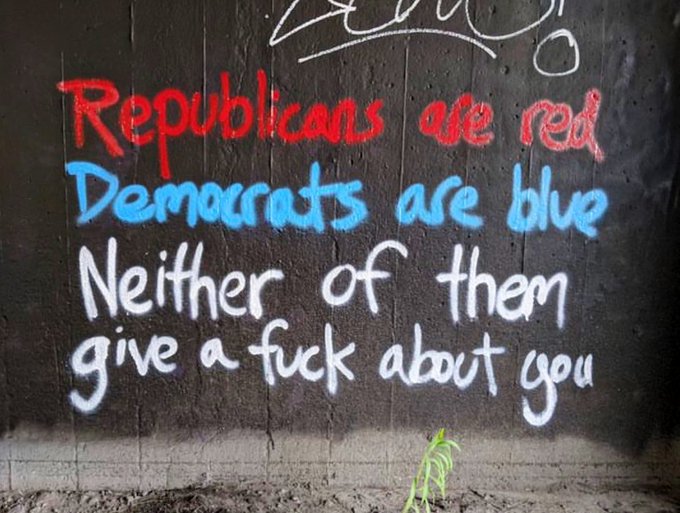 Republicans are red
Democrats are blue
Neither of them
give a fuck about you